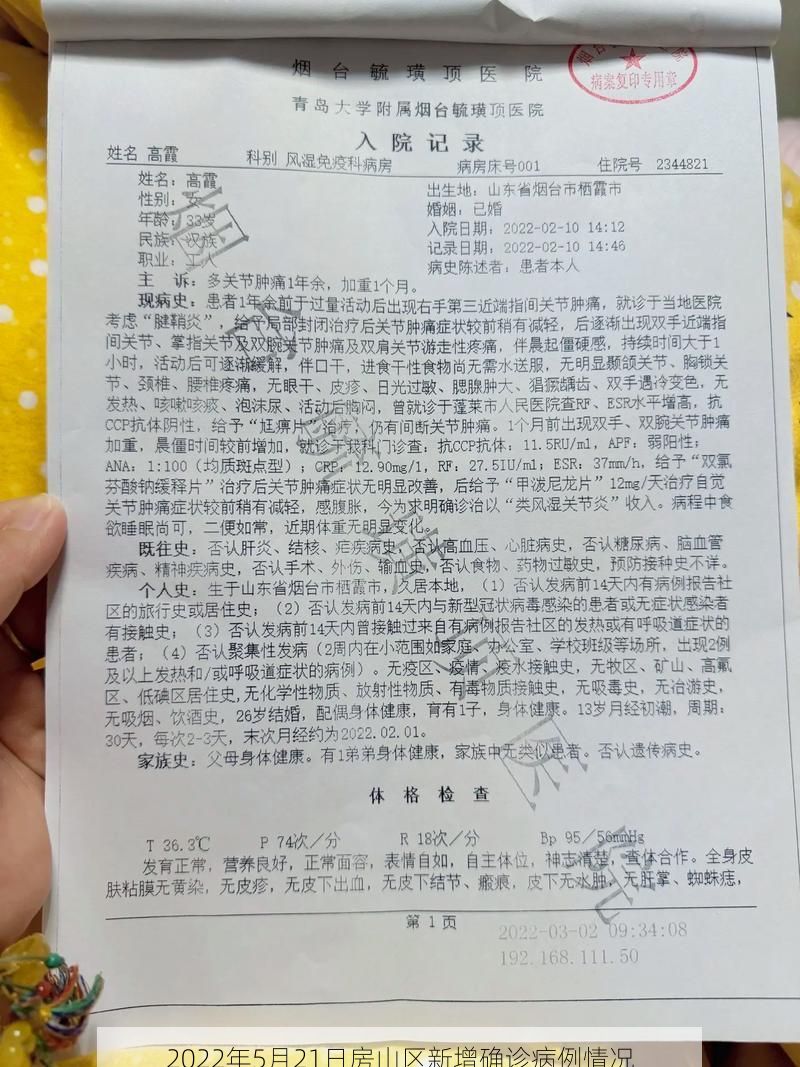 烟台毓璜顶医院
病案复印专用章
青岛大学附属烟台毓璜顶医院
入院记录
姓名 高霞 科别 风湿免疫科病房 病房床号001 住院号 2344821
姓名：高霞 出生地：山东省烟台市栖霞市
性别：女 婚姻：已婚
年龄：33岁 入院日期：2022-02-10 14:12
民族：汉族 记录日期：2022-02-10 14:46
职业：工人 病史陈述者：患者本人
主 诉：多关节肿痛1年余，加重1个月。
现病史：患者1年余前于过量活动后出现右手第三近端指间关节肿痛，就诊于当地医院
考虑“腱鞘炎”，给予局部封闭治疗后关节肿痛症状较前稍有减轻，后逐渐出现双手近端指
间关节、掌指关节及双腕关节肿痛及双肩关节游走性疼痛，伴晨起僵硬感，持续时间大于1
小时，活动后可逐渐缓解，伴口干，进食干性食物尚无需水送服，无明显颞颌关节、胸锁关
节、颈椎、腰椎疼痛，无眼干、皮疹、日光过敏、腮腺肿大、猖獗龋齿、双手遇冷变色，无
发热、咳嗽咳痰、泡沫尿、活动后胸闷，曾就诊于蓬莱市人民医院查RF、ESR水平增高，抗
CCP抗体阴性，给予“尪痹片”治疗，仍有间断关节肿痛。1个月前出现双手、双腕关节肿痛
加重，晨僵时间较前增加，就诊于我科门诊查：抗CCP抗体：11.5RU/ml，APF：弱阳性；
ANA：1:100（均质斑点型）；CRP：12.90mg/l，RF：27.5IU/ml；ESR：37mm/h，给予“双氯
芬酸钠缓释片”治疗后关节肿痛症状无明显改善，后给予“甲泼尼龙片”12mg/天治疗自觉
关节肿痛症状较前稍有减轻，感腹胀，今为求明确诊治以“类风湿关节炎”收入。病程中食
欲睡眠尚可，二便如常，近期体重无明显变化。
既往史：否认肝炎、结核、疟疾病史，否认高血压、心脏病史，否认糖尿病、脑血管
疾病、精神疾病史，否认手术、外伤、输血史，否认食物、药物过敏史，预防接种史不详。
个人史：生于山东省烟台市栖霞市，久居本地，（1）否认发病前14天内有病例报告社
区的旅行史或居住史；（2）否认发病前14天内与新型冠状病毒感染的患者或无症状感染者
有接触史；（3）否认发病前14天内曾接触过来自有病例报告社区的发热或有呼吸道症状的
患者；（4）否认聚集性发病（2周内在小范围如家庭、办公室、学校班级等场所，出现2例
及以上发热和/或呼吸道症状的病例）。无疫区、疫情、疫水接触史，无牧区、矿山、高氟
区、低碘区居住史，无化学性物质、放射性物质、有毒物质接触史，无吸毒史，无冶游史，
无吸烟、饮酒史，26岁结婚，配偶身体健康，育有1子，身体健康。13岁月经初潮，周期：
30天，每次2-3天，末次月经约为2022.02.01。
家族史：父母身体健康。有1弟弟身体健康，家族中无类似患者。否认遗传病史。
体格检查
T 36.3℃ P 74次／分 R 18次／分 Bp 95／56mmHg
发育正常，营养良好，正常面容，表情自如，自主体位，神志清楚，查体合作。全身皮
肤粘膜无黄染，无皮疹，无皮下出血，无皮下结节、瘢痕，皮下无水肿，无肝掌、蜘蛛痣，
第 1 页
2022-03-02 09:34:08
192.168.111.50
2022年5月21日房山区新增确诊病例情况